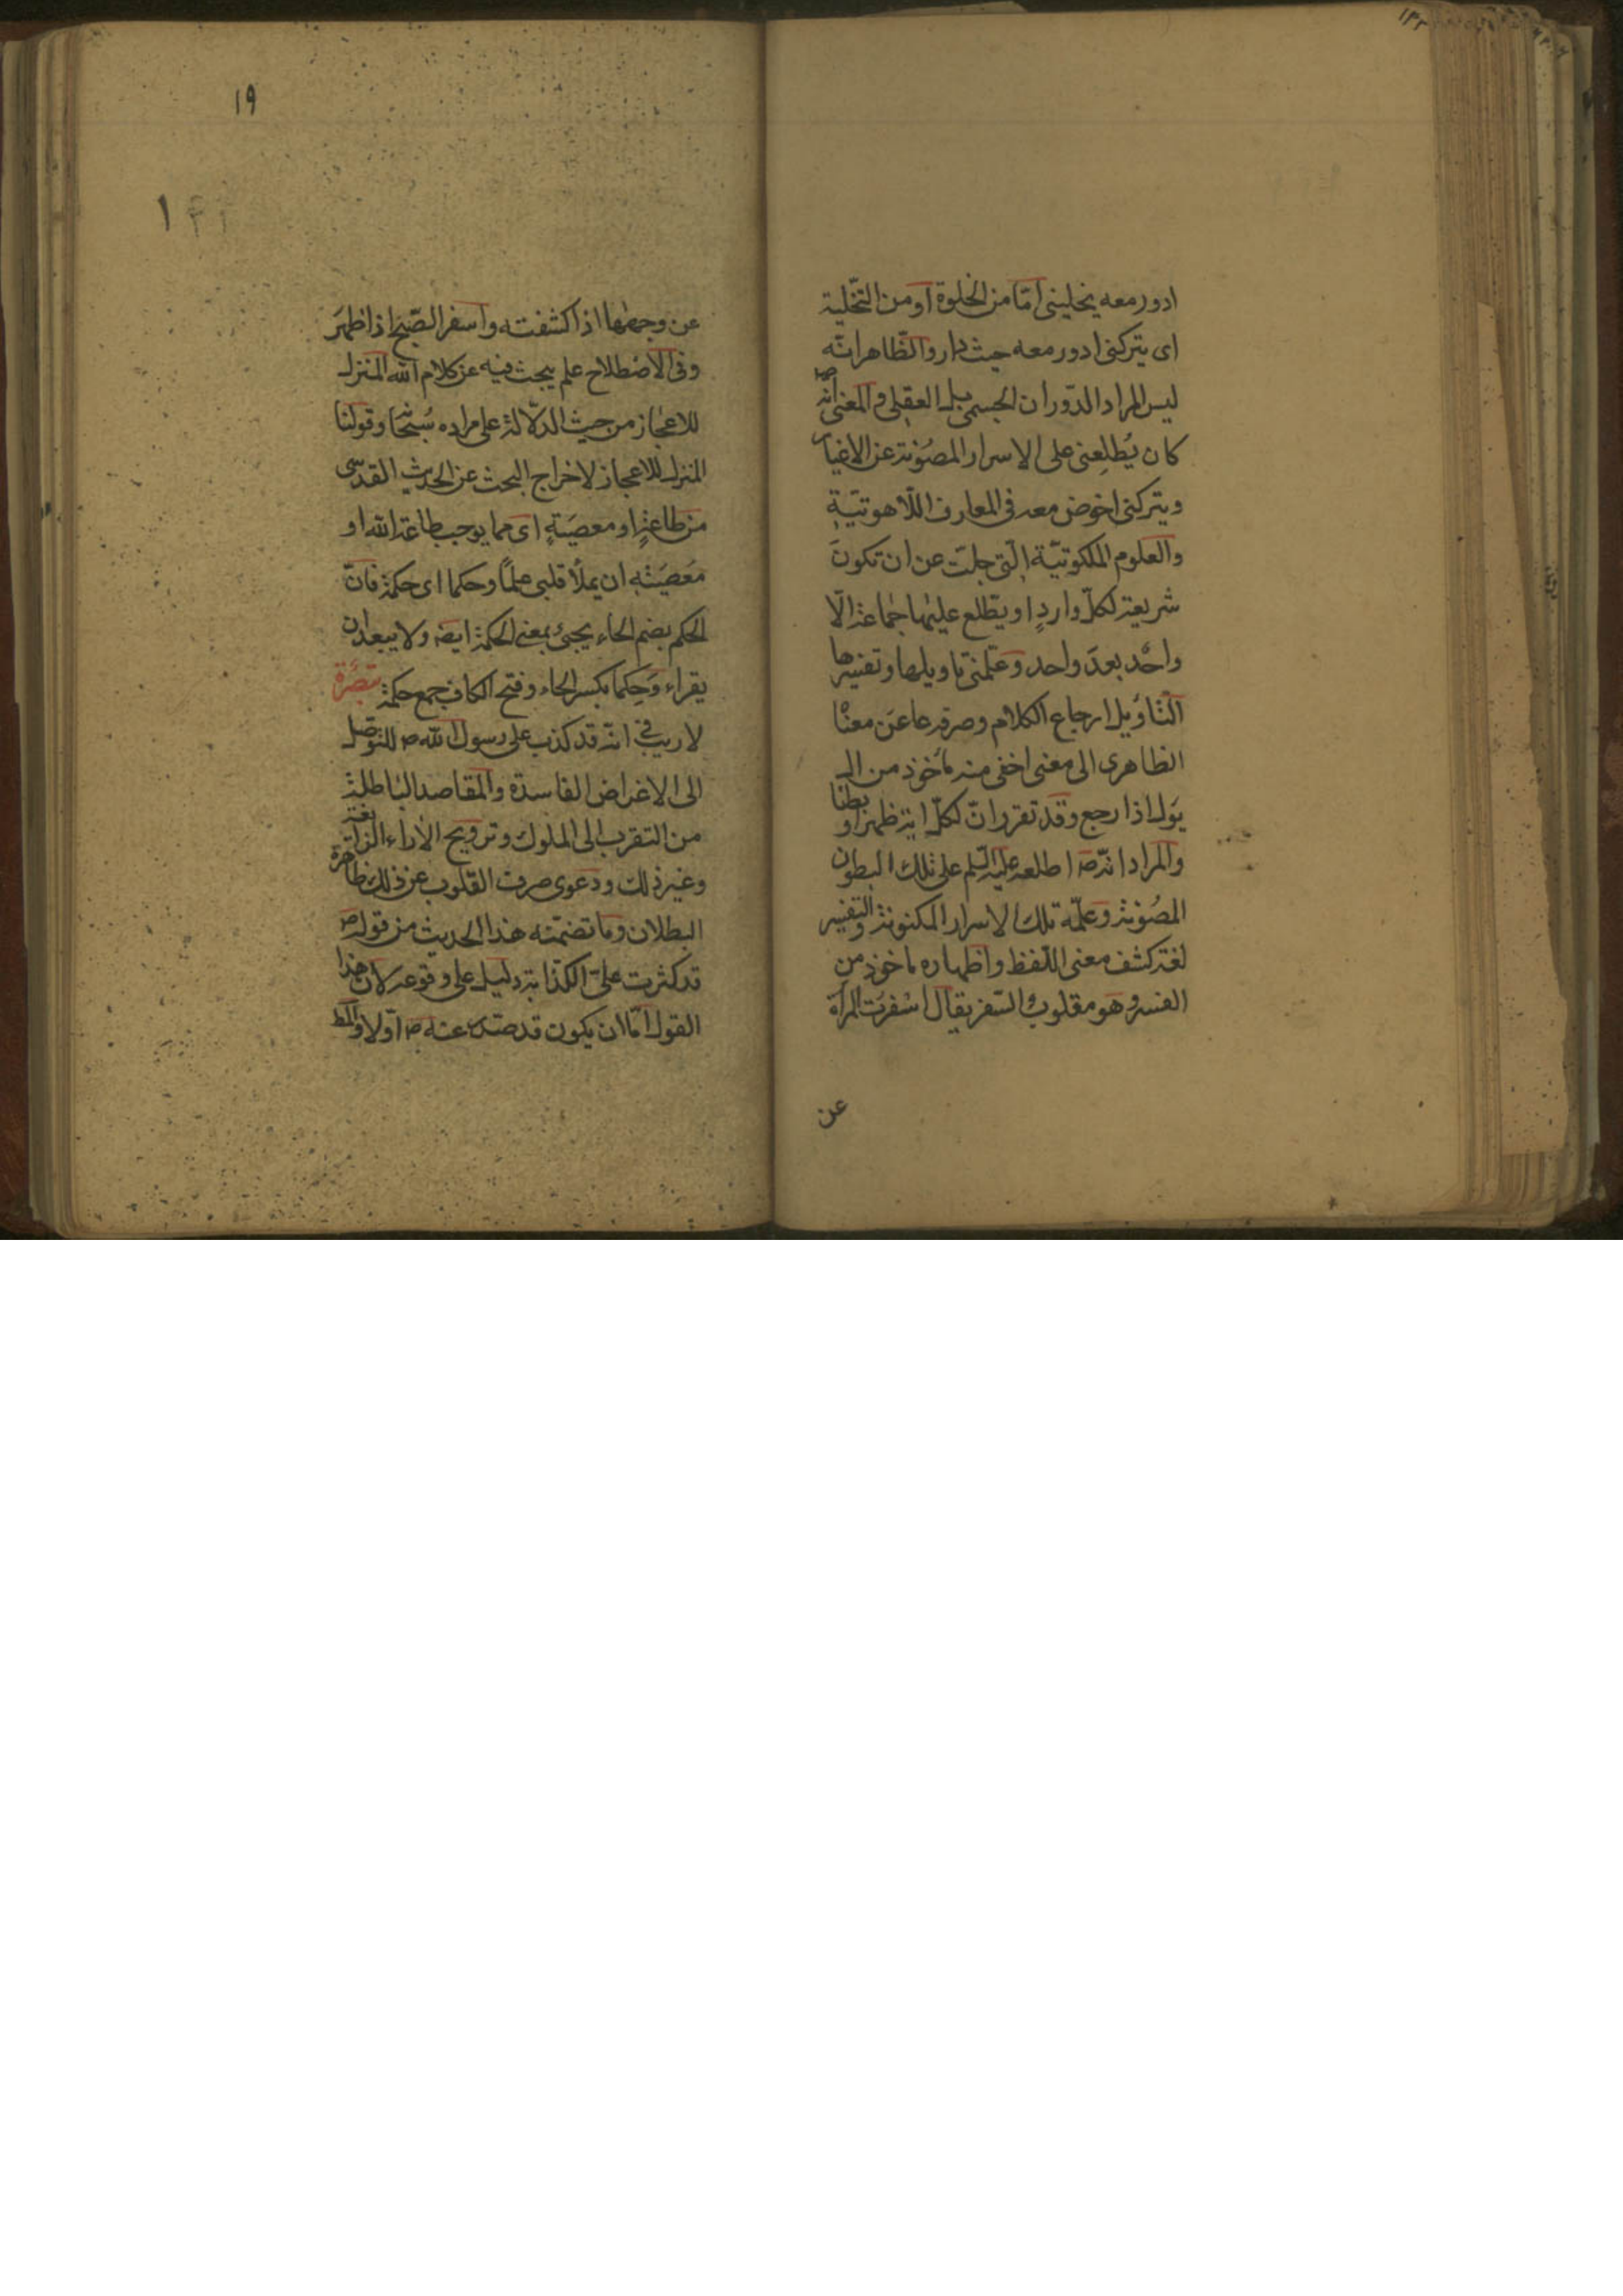 ادور معه يخلينى امّا من الخلوة او من التّخلية
اى يتركنى ادور معه حيث دار والظّاهر انّه
ليس المراد الدّوران الجسمى بل العقلى والمعنى انّه ص
كان يُطلِعنى على الاسرار المصُونة عن الاغيار
ويتركنى اخوض معه فى المعارف اللّاهوتيّةِ
والعلوم الملكوتيّة الّتى جلّت عن ان تكونَ
شريعة لكلّ واردٍ او يطّلع عليها جماعة الّا
واحد بعدَ واحد وعلّمنى تاويلها وتفسيرها
التّاويل ارجاع الكلام وصرفه عن معناه
الظاهرى الى معنى اخفى منه مأخوذ من ال
يَول اذا رجع وقد تقرر انّ لكلّ اية ظهرا و بطنا
والمراد انّه ص اطلعه عليه السّلم على تلك البطون
المصُونة وعلّمه تلك الاسرار المكنونة والتفسير
لغة كشف معنى اللّفظ واظهاره ماخوذ من
الفسر وهو مقلوب السّفر يقال اسْفرَت المرأة
عن
١٩
عن وجهها اذا كشفته واسفر الصّبح اذا ظهرَ
وفى الاصْطلاح علم يبحث فيه عن كلام الله المنزل
للاعجاز من حيث الدلالة على مراده سُبْحانه وقولنا
المنزل للاعجاز لاخراج البحث عن الحديث القدسى
من طاعةٍ او معصيَةٍ اى مما يوجب طاعة الله او
معَصيَته ان يملأ قلبى علمًا وحكما اى حكمة فانّ
الحكم بضم الحاء يجىء بمعنى الحكمة ايضه ولا يبعد ان
يقراء وَحِكما بكسر الحاء وفتح الكاف جمع حكمة تبصرة
لا ريب فى انّه قد كذب على رسول الله ص للتوصّل
الى الاغراض الفاسدة والمقاصد الباطلة
من التقرب الى الملوك وترويج الأراء الزائغة
وغير ذلك ودعوى صرف القلوب عن ذلك ظاهرة
البطلان وما تضمّنه هذا الحديث من قوله ص
قد كثرت علىّ الكذّابة دليل على وقوعه لان هذا
القول امّا ان يكون قد صدر عنه ص اوّلا والمط